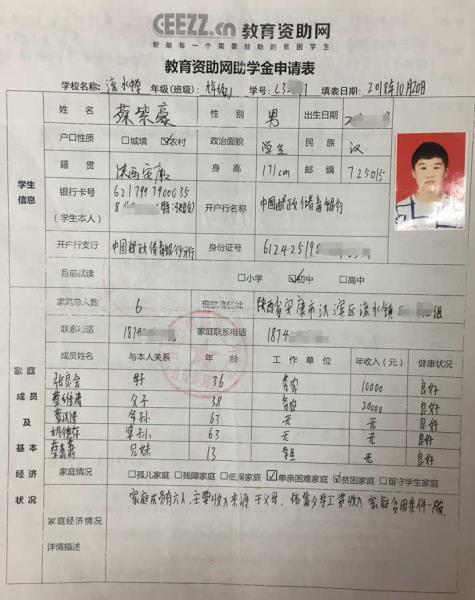 CEEZZ.cn 教育资助网
帮助每一个需要帮助的贫困学生
教育资助网助学金申请表
学校名称: 流水镇 年级(班级): 学号: 填表日期: 2018年10月20日
姓名 蔡紫豪 性别 男 出生日期
户口性质 □城填 ☑农村 政治面貌 学生 民族 汉
籍贯 陕西安康 身高 171cm 邮编 725015
学生
信息
银行卡号 621799790035
(学生本人)
开户行名称 中国邮政储蓄银行
开户行支行 中国邮政储蓄银行 身份证号 61242519
目前就读 □小学 ☑初中 □高中
家庭总人数 6 陕西省安康市汉滨区流水镇 组
联系电话 1874 家庭联系电话 1874
成员姓名 与本人关系 年龄 工作单位 年收入(元) 健康状况
母子 36 务农 10000 良好
父子 38 务农 20000 良好
爷孙 63 无 无 良好
63 无 无 良好
兄妹 13 学生 无 良好
家庭
成员
及
基本
经济
状况
家庭情况 □孤儿家庭 □残障家庭 □低保家庭 ☑单亲困难家庭 ☑贫困家庭 □留守学生家庭
家庭成员有六人,主要收入来源于父母,
家庭经济情况
详情描述